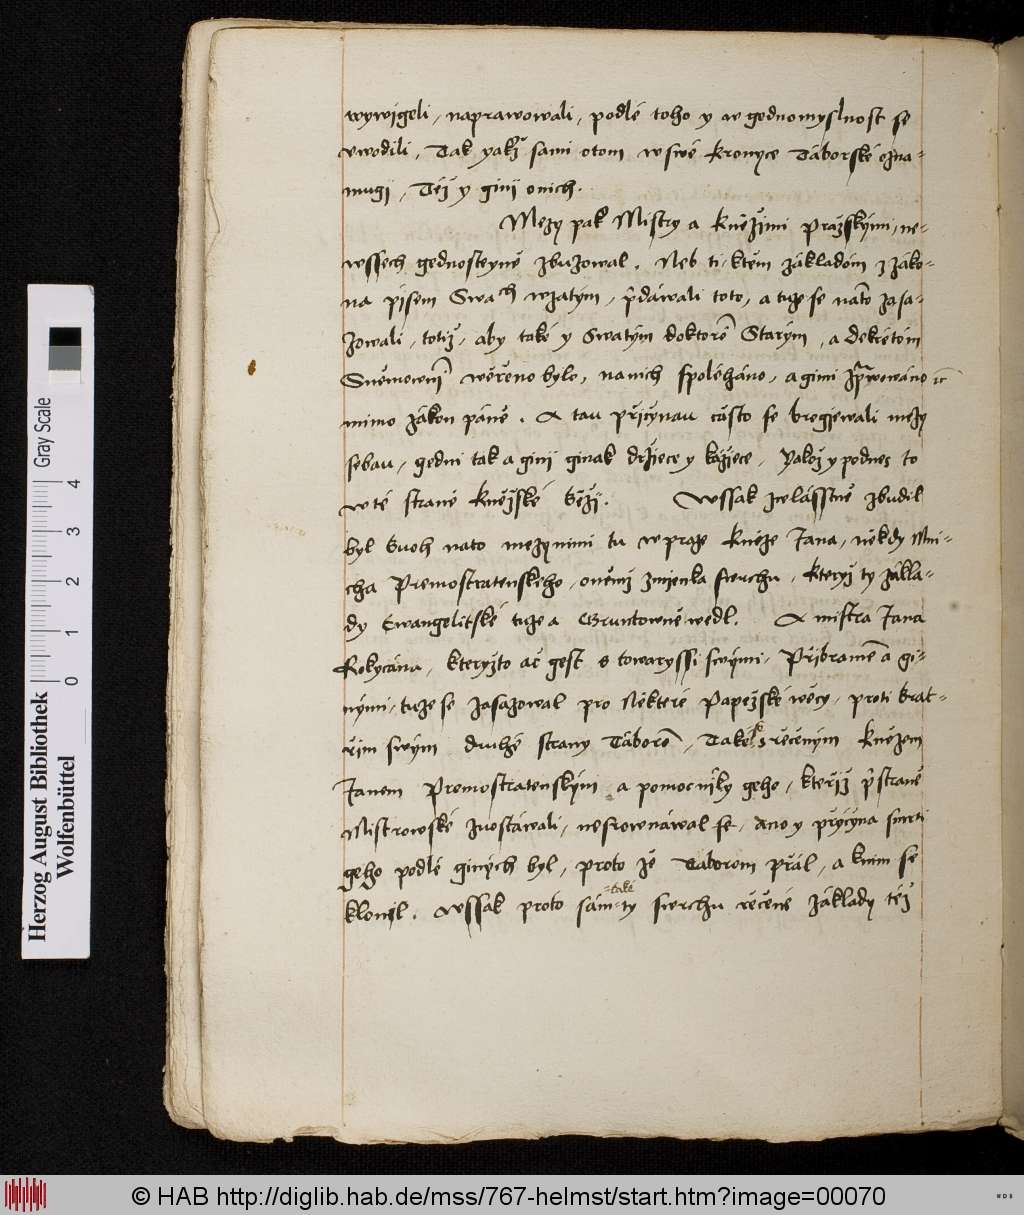 wywígeli, naprawowali, podlé toho y w gednomyslnost se
vwodili, Tak yakž sami otom w swé Kronyce Táborské ozna=
mugij, Téz y ginij o nich.
Mezy pak Mistry a Kněžími Pražskými, ne=
wssech gednosteyně zbuzowal. Neb ti k těm základóm z záko=
na písem Swatých wzatým, přdáwali toto, a tuze se na to zasa=
zowali, totiž, aby také y Swatým doktorom Starým, a dekretóm
Sněmowním wěřeno bylo, na nich spoleháno, a gimi zprawowáno
mimo zákon páně. A tau přícynau cásto se brogewali mezy
sebau, gedni tak a ginij ginak držiece y kážiece, Yakož y podnes to
w té straně Kněžské běží. Wssak zwlásstně zbudil
byl Buoh na to mezy nimi tu w praze Kněze Jana, někdy Mni=
cha Premostratenskeho, o němž zmienka swrchu, kterýž ty zákla=
dy Ewangelitské tuze a Gruntowně wedl. A mistra Jana
Rokycána, kterýžto ač gest s towaryssi swými, Přibramem a gi=
nými, tuze se zasazowal pro Některé Papežské wěcy, proti brat=
řím swým druhé strany Táborom, Také s řečeným Knězem
Janem Premostratenským a pomocníky geho, kteříž při straně
Mistrowské zuostáwali, nesrownáwal se, Ano y přýcyna smrti
geho podlé giných byl, proto že Táborom přál, a k nim se
klonil. Wssak proto sám také ty swrchu řečené základy též
Herzog August Bibliothek
Wolfenbüttel
Gray Scale
0 1 2 3 4
© HAB http://diglib.hab.de/mss/767-helmst/start.htm?image=00070
WDB